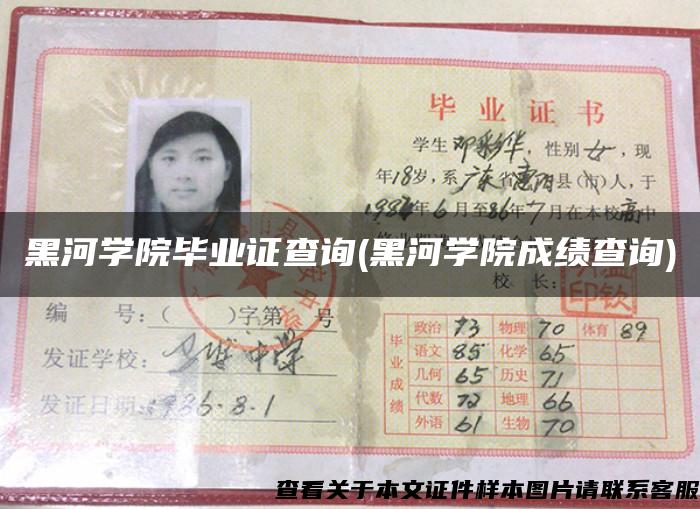 毕业证书
学生邓彩华，性别女，现
年18岁，系广东省惠阳县(市)人，于
1984年6月至86年7月在本校高中
黑河学院毕业证查询(黑河学院成绩查询)
校 长：
编 号：( )字第 号
发证学校： 中学
发证日期：1986.8.1
毕业成绩
政治 73 物理 70 体育 89
语文 85 化学 65
几何 65 历史 71
代数 72 地理 66
外语 61 生物 70
查看关于本文证件样本图片请联系客服